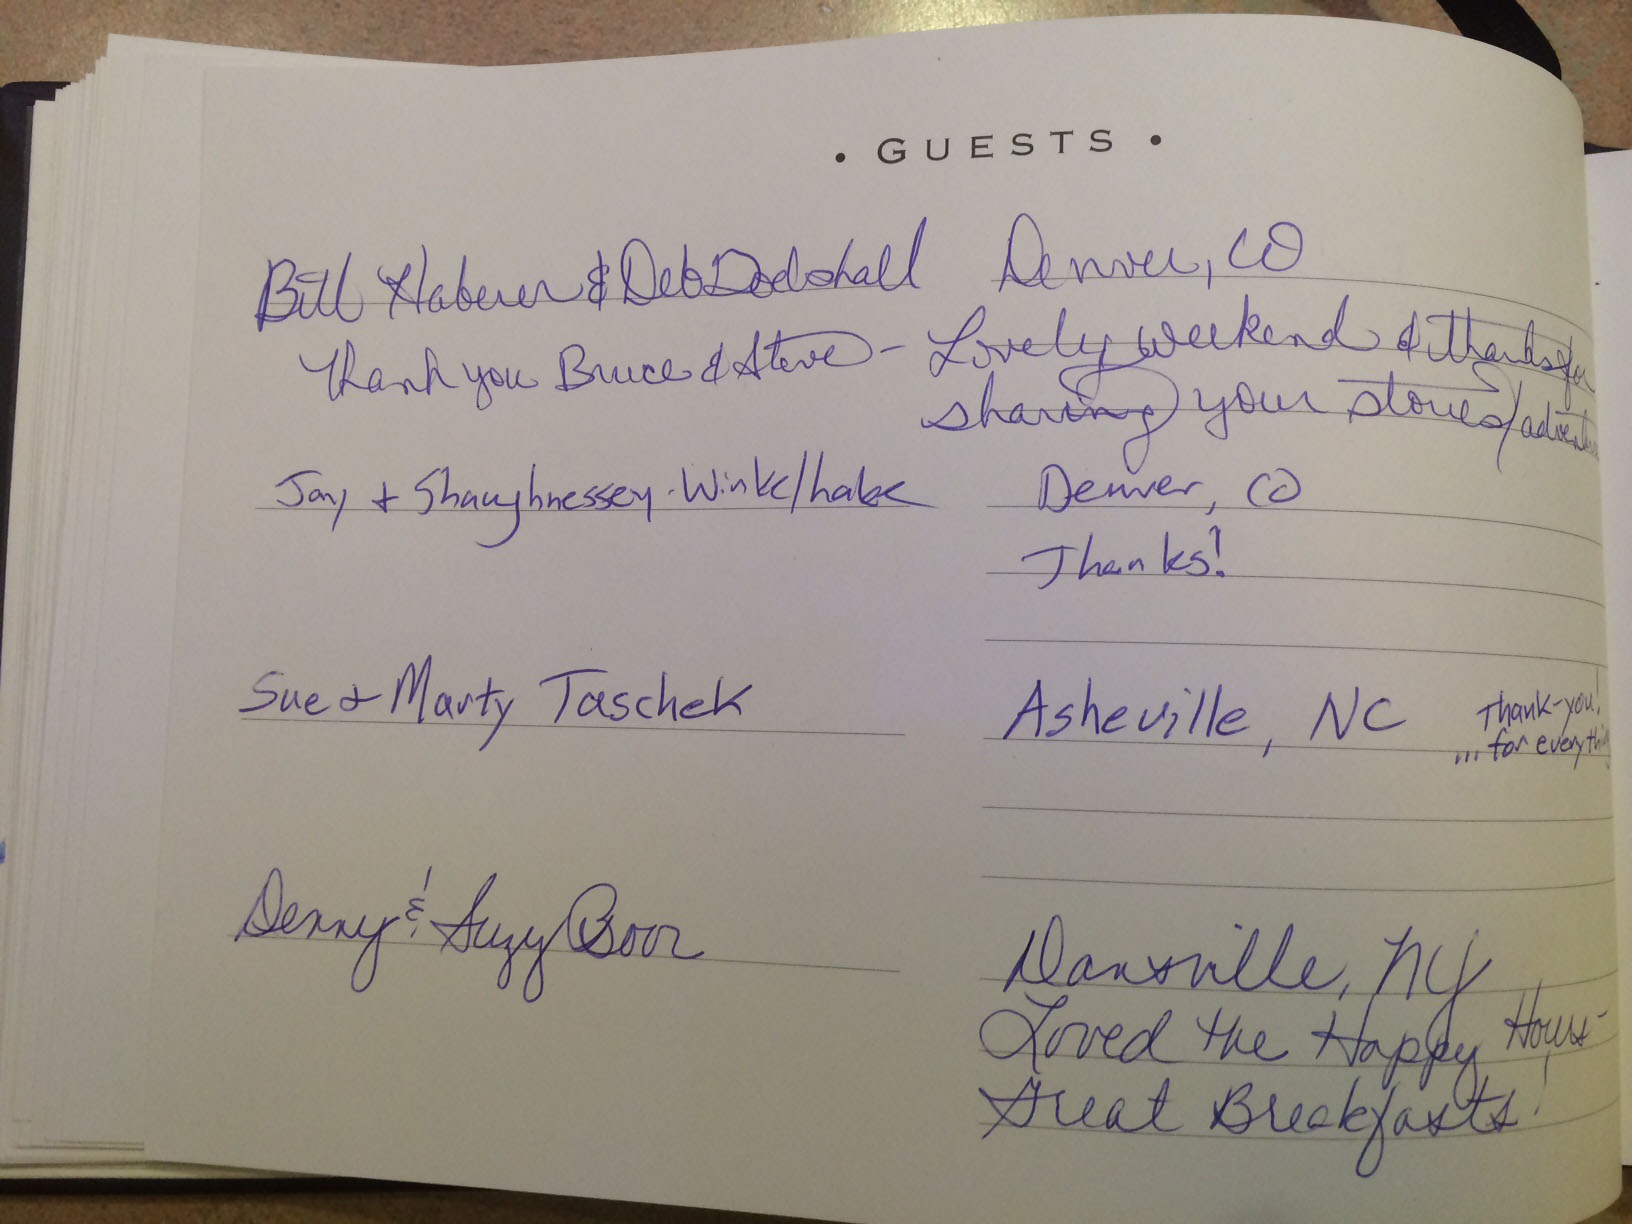 • GUESTS •
Bill Haberer & Deb Dodshall Denver, CO
Thank you Bruce & Steve - Lovely weekend & thanks for
sharing your stories/
Jay + Shaughnessey
Denver, CO
Thanks!
Sue & Marty Taschek Asheville, NC Thank-you!
... for everything
Denny & Suzy Boor
Dansville, NY
Loved the Happy Hours -
Great Breakfasts!